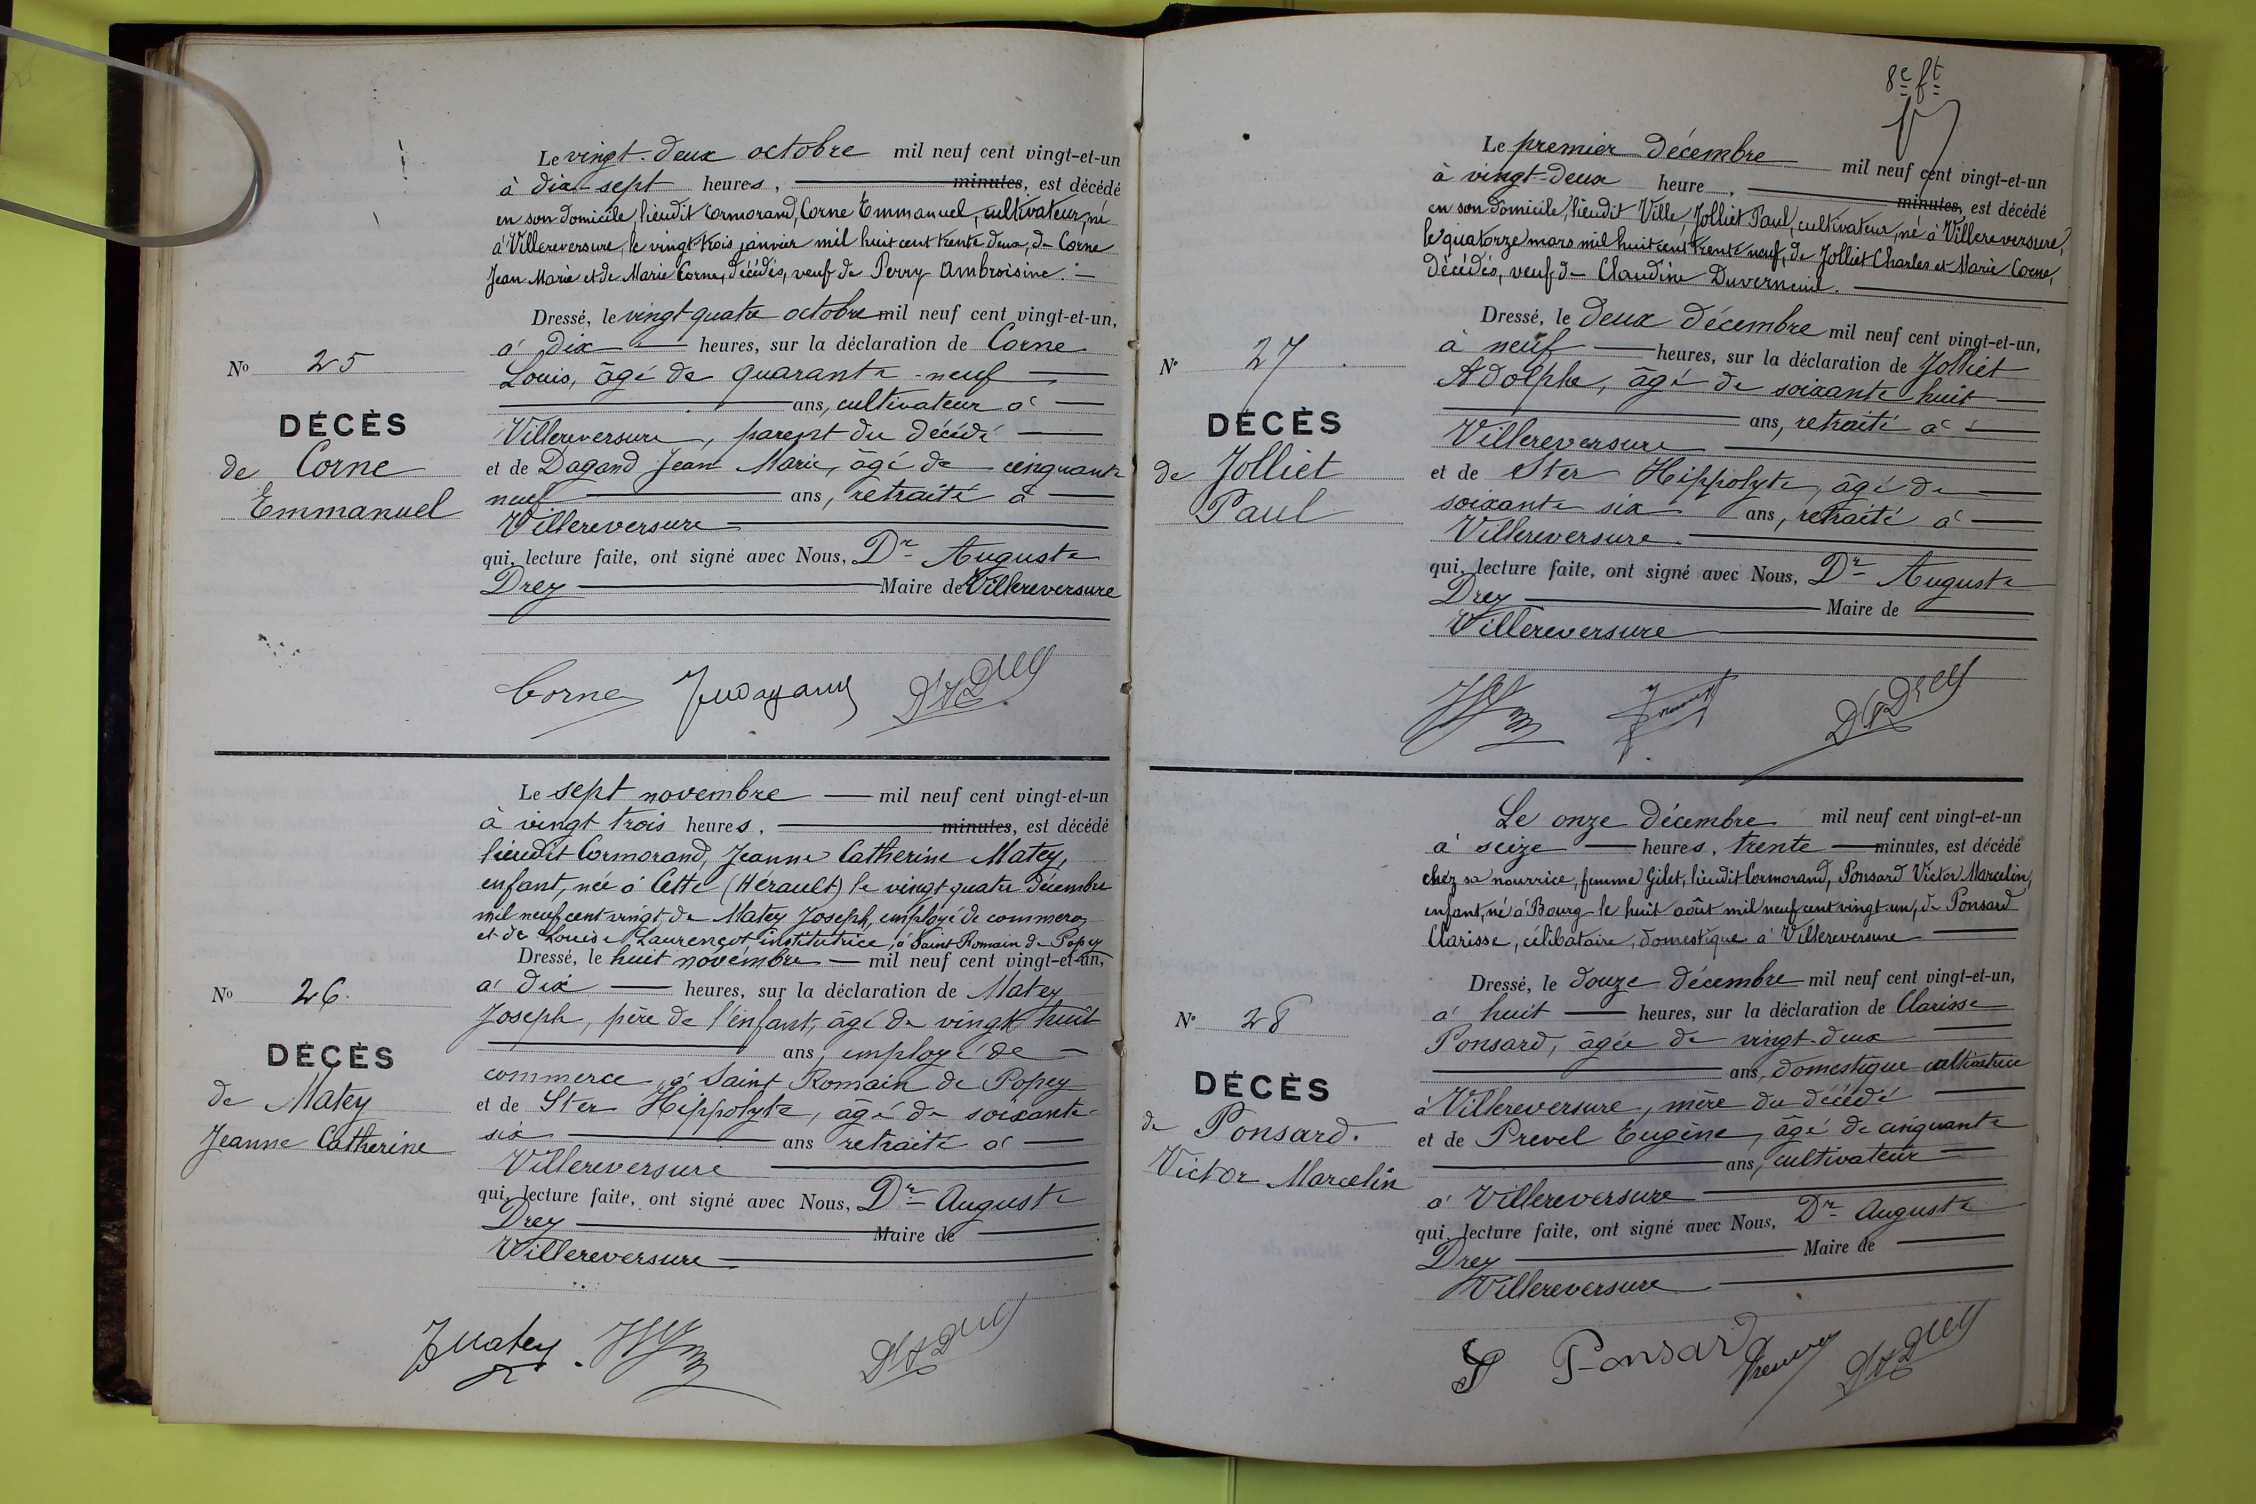 Le vingt-deux octobre mil neuf cent vingt-et-un
à dix-sept heures, minutes, est décédé
en son domicile, lieudit Cormorand, Corne Emmanuel, cultivateur, né
à Villereversure, le vingt-trois janvier mil huit cent trente deux, de Corne
Jean Marie et de Marie Corne, décédés, veuf de Perry Ambroisine.
Dressé, le vingt quatre octobre mil neuf cent vingt-et-un,
à dix heures, sur la déclaration de Corne
Louis, âgé de quarante-neuf
ans, cultivateur à
Villereversure, parent du décédé
et de Dagand Jean Marie, âgé de cinquante
neuf ans, retraité à
Villereversure
qui, lecture faite, ont signé avec Nous, Dr Auguste
Drey Maire de Villereversure
No 25
DÉCÈS
de Corne
Emmanuel
Corne JMDagand Dr A Drey
Le sept novembre mil neuf cent vingt-et-un
à vingt trois heures, minutes, est décédé
lieudit Cormorand, Jeanne Catherine Matey,
enfant, née à Cette (Hérault) le vingt quatre décembre
mil neuf cent vingt, de Matey Joseph, employé de commerce
et de Louise Laurençot institutrice, à Saint Romain de Popey
Dressé, le huit novembre mil neuf cent vingt-et-un,
à dix heures, sur la déclaration de Matey
Joseph, père de l'enfant, âgé de vingt huit
ans, employé de
commerce, à Saint Romain de Popey
et de Ster Hippolyte, âgé de soixante-
six ans retraité à
Villereversure
qui, lecture faite, ont signé avec Nous, Dr Auguste
Drey Maire de
Villereversure
No 26.
DÉCÈS
de Matey
Jeanne Catherine
JMatey Dr A Drey
8e ft
Le premier décembre mil neuf cent vingt-et-un
à vingt-deux heure, minutes, est décédé
en son domicile, lieudit Ville, Jolliet Paul, cultivateur, né à Villereversure,
le quatorze mars mil huit cent trente neuf, de Jolliet Charles et Marie Corne,
décédés, veuf de Claudine Duverneuil.
Dressé, le deux décembre mil neuf cent vingt-et-un,
à neuf heures, sur la déclaration de Jolliet
Adolphe, âgé de soixante huit
ans, retraité à
Villereversure
et de Ster Hippolyte, âgé de
soixante six ans, retraité à
Villereversure
qui, lecture faite, ont signé avec Nous, Dr Auguste
Drey Maire de
Villereversure
No 27
DÉCÈS
de Jolliet
Paul
Dr A Drey
Le onze décembre mil neuf cent vingt-et-un
à seize heures, trente minutes, est décédé
chez sa nourrice, femme Gilet, lieudit Cormorand, Ponsard Victor Marcelin,
enfant, né à Bourg le huit août mil neuf cent vingt un, de Ponsard
Clarisse, célibataire, domestique à Villereversure
Dressé, le douze décembre mil neuf cent vingt-et-un,
à huit heures, sur la déclaration de Clarisse
Ponsard, âgée de vingt-deux
ans, domestique cultivatrice
à Villereversure, mère du décédé
et de Prevel Eugène, âgé de cinquante
ans, cultivateur
à Villereversure
qui, lecture faite, ont signé avec Nous, Dr Auguste
Drey Maire de
Villereversure
No 28
DÉCÈS
de Ponsard.
Victor Marcelin
Ponsard Dr A Drey